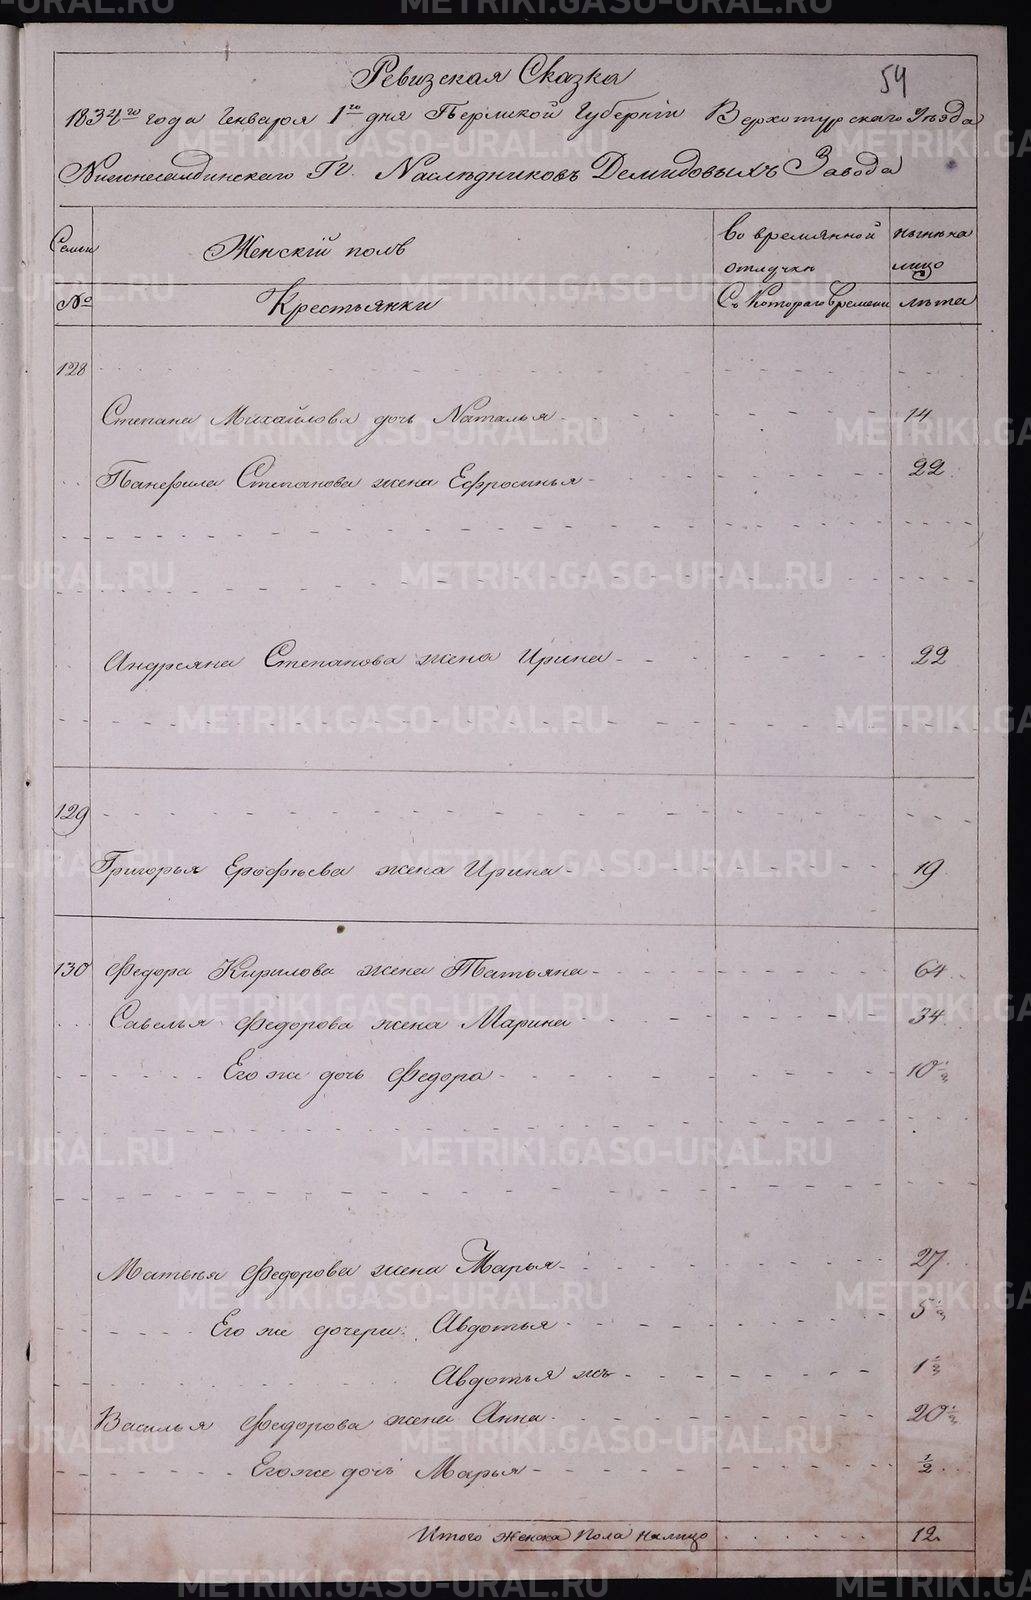 Ревизская Сказка
54
1834го года Генваря 1го дня Пермской Губернiи Верхотурскаго Уѣзда
Нижнесалдинскаго Гг. Наслѣдниковъ Демидовыхъ Завода
Семьи
Женскiй полъ
во времянной отлучкѣ
нынѣ на лицо
№
Крестьянки
Съ Котораго времени
лѣта
128
Степана Михайлова дочь Наталья 14
Панфила Степанова жена Ефросинья 22
Андреяна Степанова жена Ирина 22
129
Григорья Ерофѣева жена Ирина 19
130 Федора Кирилова жена Татьяна 64
Савелья Федорова жена Марина 34
Его же дочь Федора 10 1/2
Матвѣя Федорова жена Марья 27
Его же дочери: Авдотья 5 1/2
Авдотья жъ 1 1/2
Василья Федорова жена Анна 20 1/2
Его же дочь Марья 1/2
Итого женска пола налицо 12
METRIKI.GASO-URAL.RU